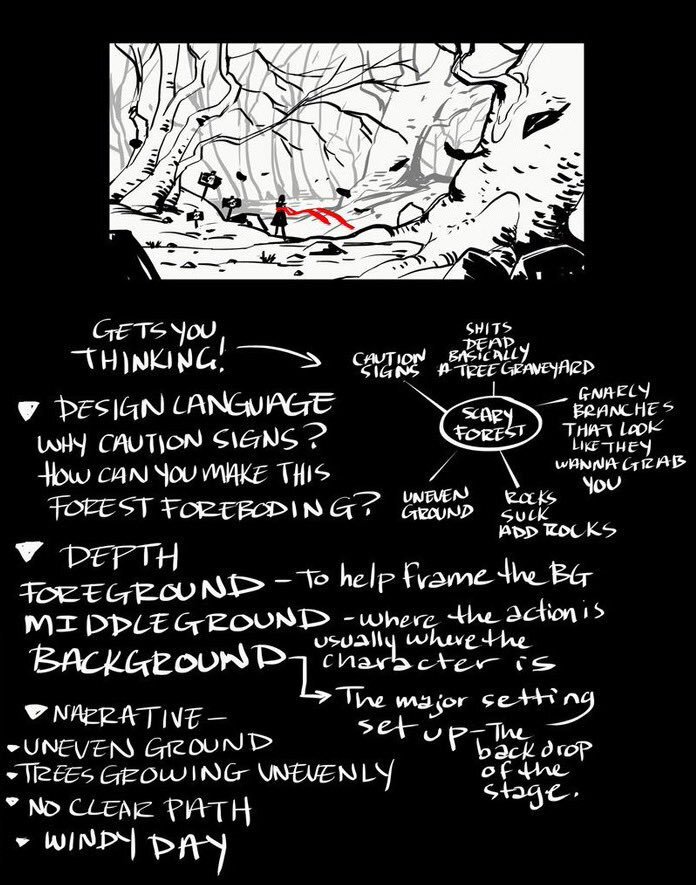 GETS YOU
THINKING!
DESIGN LANGUAGE
WHY CAUTION SIGNS?
HOW CAN YOU MAKE THIS
FOREST FOREBODING?
SCARY
FOREST
CAUTION
SIGNS
SHITS
DEAD
BASICALLY
A TREE GRAVEYARD
GNARLY
BRANCHES
THAT LOOK
LIKE THEY
WANNA GRAB
YOU
UNEVEN
GROUND
ROCKS
SUCK
ADD ROCKS
DEPTH
FOREGROUND - To help frame the BG
MIDDLEGROUND - where the action is
usually where the
character is
BACKGROUND
The major setting
set up - The
back drop
of the
stage.
NARRATIVE -
• UNEVEN GROUND
• TREES GROWING UNEVENLY
• NO CLEAR PATH
• WINDY DAY